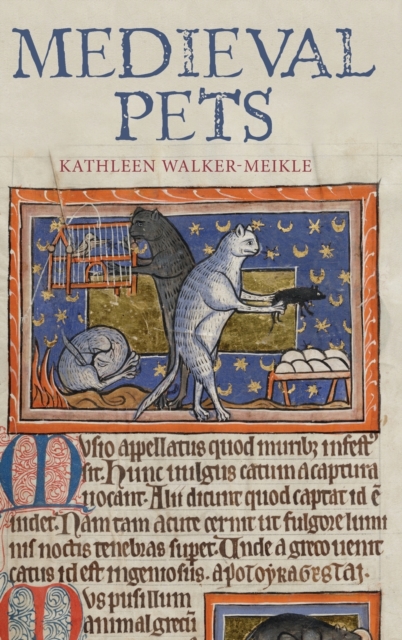 MEDIEVAL
PETS
KATHLEEN WALKER-MEIKLE
Musio appellatus quod muribz infest
sit. Hunc uulgus catum a captura
uocant. Alii dicunt quod captat id ē
uidet. Nam tam acute cernit ut fulgore lumi
nis noctis tenebras superet. Unde a greco uenit
catus id est ingeniosus. apotoykagestai.
Mus pusillum
animal grecū